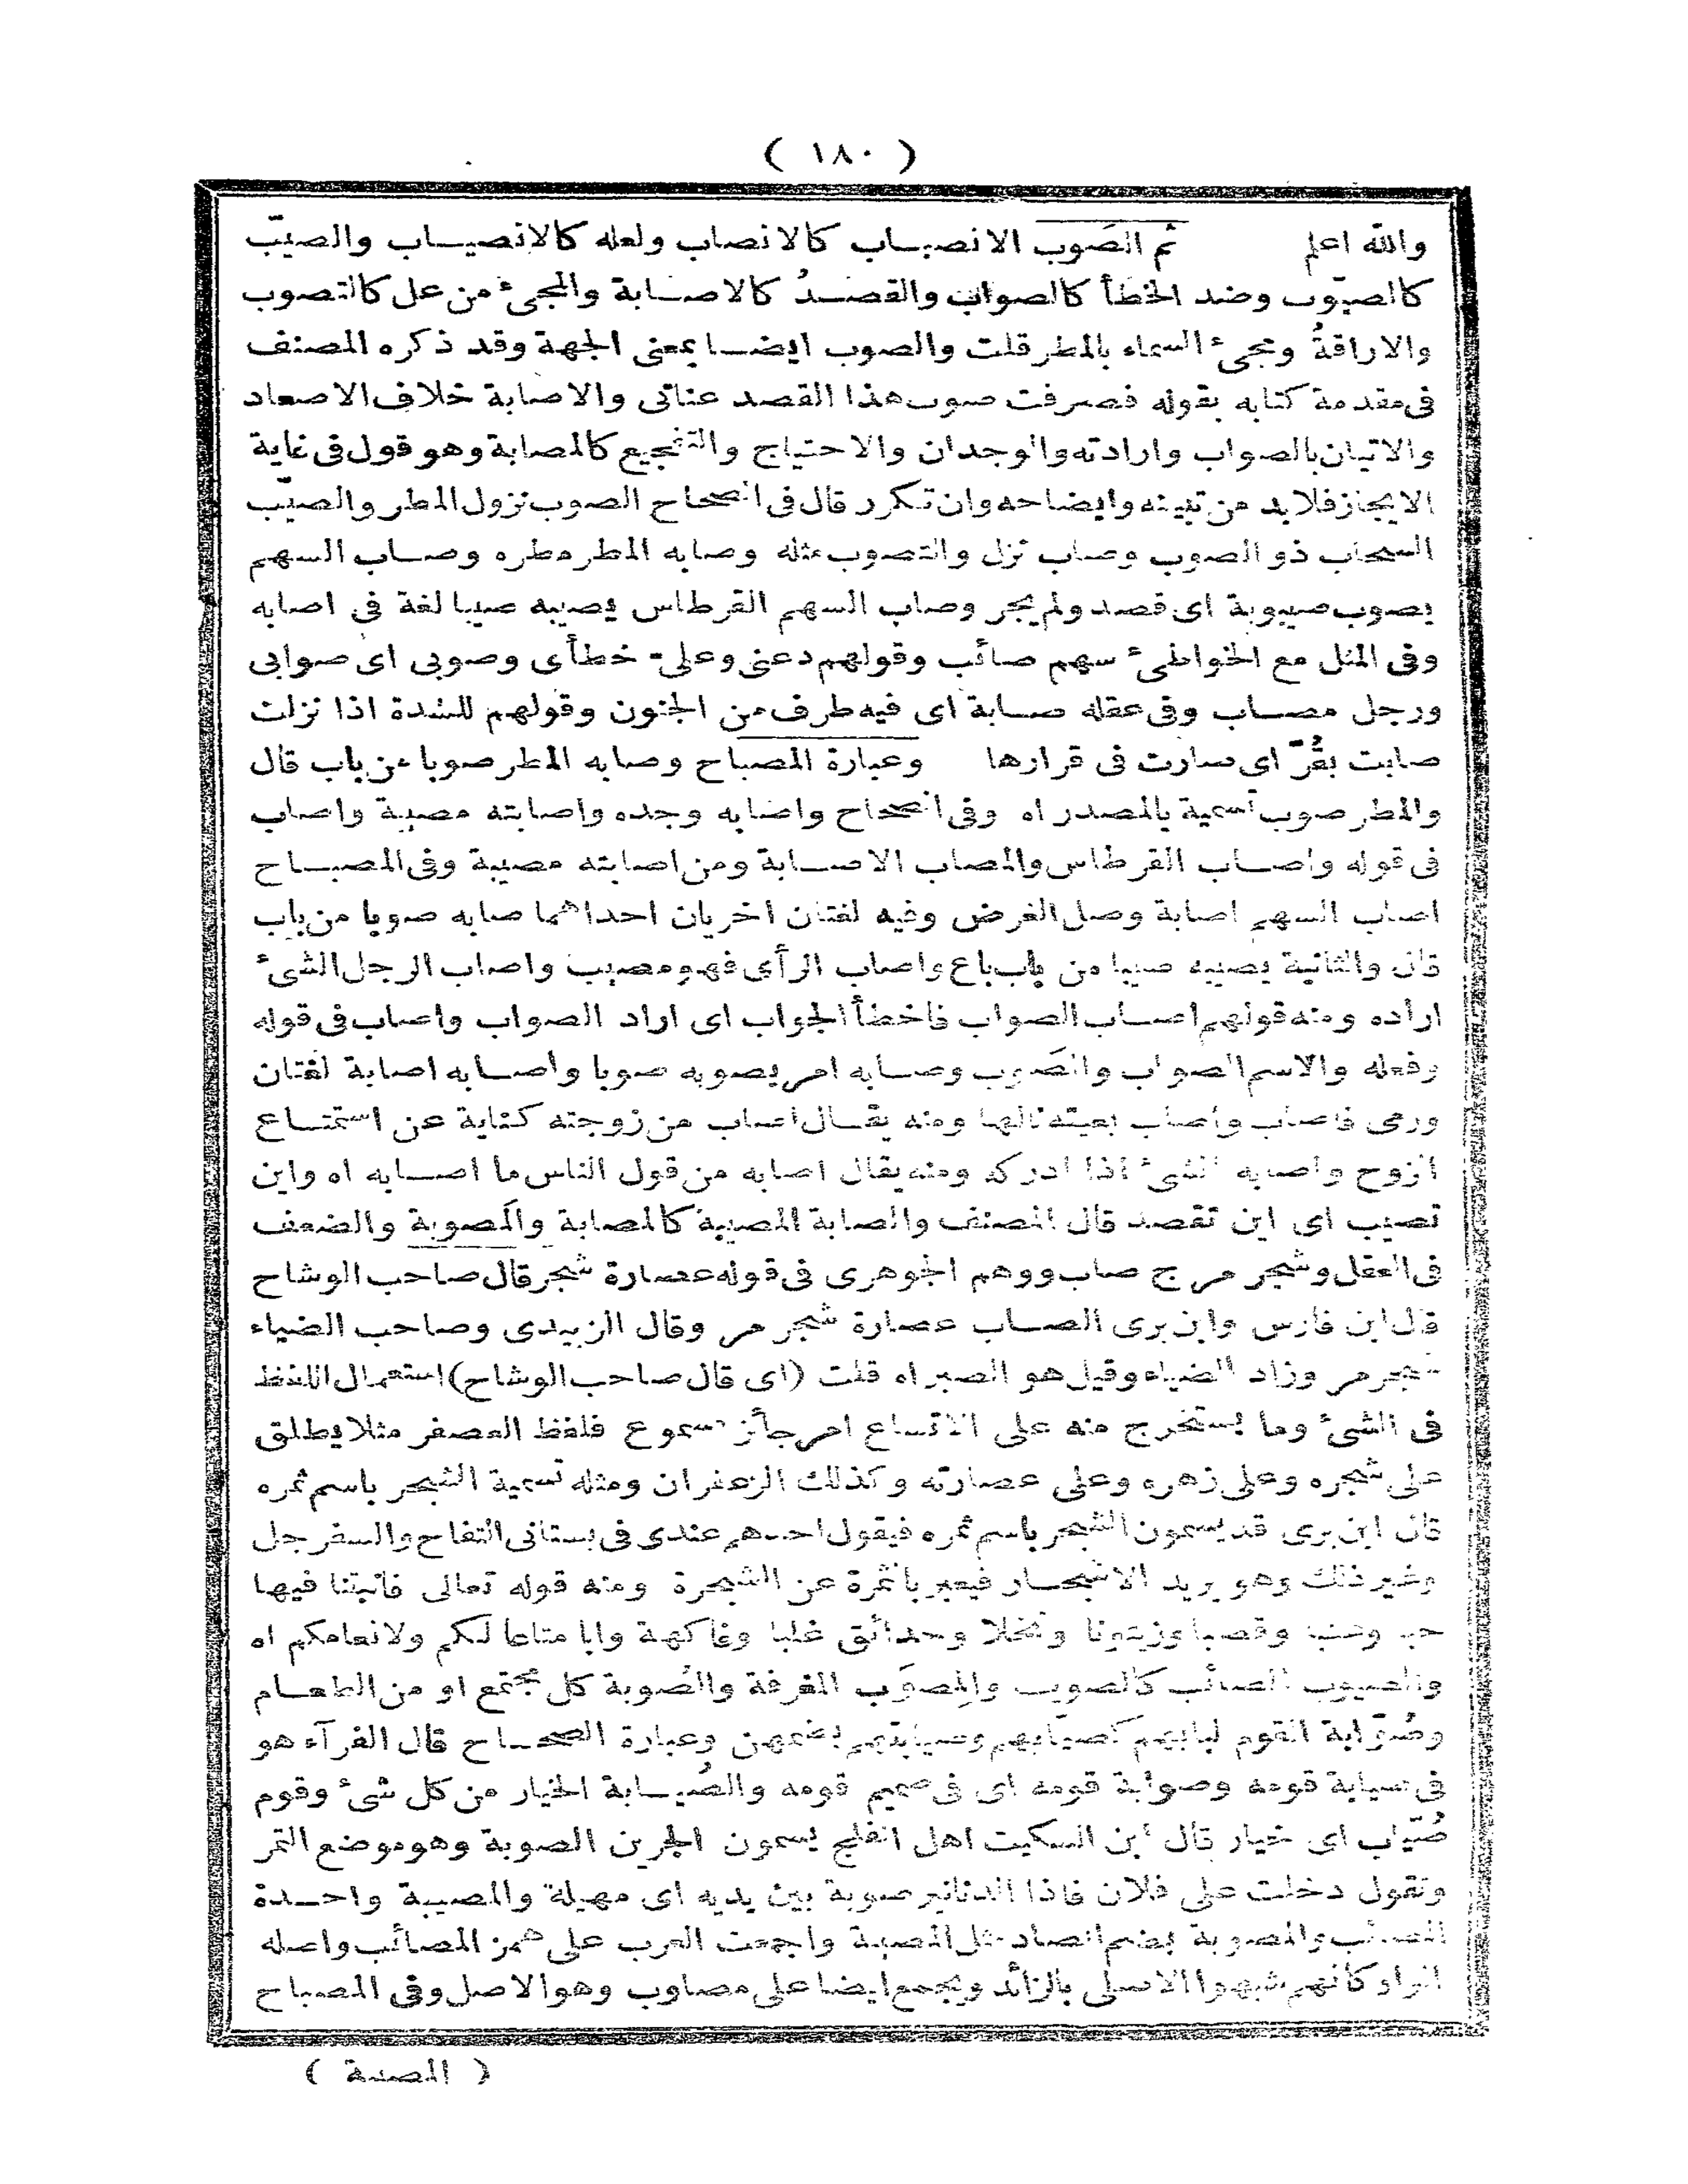 ( ١٨٠ )
والله اعلم ثم الصَوب الانصباب كالانصاب ولعله كالانصيــاب والصيّب
كالصيّوب وضد الخطأ كالصواب والقصــدُ كالاصــابة والمجىء من عل كالتصوب
والاراقةُ ومجىء السماء بالمطر قلت والصوب ايضــا بمعنى الجهة وقد ذكره المصنف
فى مقدمة كتابه بقوله فصرفت صوب هذا القصد عنانى والاصابة خلاف الاصعاد
والاتيان بالصواب وارادته والوجدان والاحتياج والتفجيع كالمصابة وهو قول فى غاية
الايجاز فلابد من تبيينه وايضاحه وان تكرر قال فى الصحاح الصوب نزول المطر والصيّب
السحاب ذو الصوب وصاب نزل والتصوب مثله وصابه المطر مطره وصــاب السهم
يصوب صيبوبة اى قصد ولم يجر وصاب السهم القرطاس يصيبه صيبا لغة فى اصابه
وفى المثل مع الخواطىء سهم صائب وقولهم دعنى وعلىّ خطأى وصوبى اى صوابى
ورجل مصــاب وفى عقله صــابة اى فيه طرف من الجنون وقولهم للشدة اذا نزلت
صابت بقُرّ اى صارت فى قرارها وعبارة المصباح وصابه المطر صوبا من باب قال
والمطر صوب تسمية بالمصدر اه وفى الصحاح واصابه وجده واصابته مصيبة واصاب
فى قوله واصــاب القرطاس والمصاب الاصــابة ومن اصابته مصيبة وفى المصبــاح
اصاب السهم اصابة وصل الغرض وفيه لغتان اخريان احداهما صابه صوبا من باب
قال والثانية يصيبه صيبا من باب باع واصاب الرأى فهو مصيب واصاب الرجل الشىء
اراده ومنه قولهم اصــاب الصواب فاخطأ الجواب اى اراد الصواب واصاب فى قوله
وفعله والاسم الصواب والصَوب وصــابه امر يصوبه صوبا واصــابه اصابة لغتان
ورمى فاصاب واصاب بغيته نالها ومنه يقــال اصاب من زوجته كناية عن استمتــاع
الزوج واصابه الشىء اذا ادركه ومنه يقال اصابه من قول الناس ما اصــابه اه واين
تصيب اى اين تقصد قال المصنف والصابة المصيبة كالمصابة والمَصوبة والضعف
فى العقل وشجر مر ج صاب ووهم الجوهرى فى قوله عصارة شجر قال صاحب الوشاح
قال ابن فارس وابن برى الصــاب عصارة شجر مر وقال الزبيدى وصاحب الضياء
شجر مر وزاد الضياء وقيل هو الصبر اه قلت (اى قال صاحب الوشاح) استعمال اللفظ
فى الشىء وما يستخرج منه على الاتساع امر جائز مسموع فلفظ العصفر مثلا يطلق
على شجره وعلى زهره وعلى عصارته وكذلك الزعفران ومثله تسمية الشجر باسم ثمره
قال ابن برى قد يسمون الشجر باسم ثمره فيقول احدهم عندى فى بستانى التفاح والسفرجل
وغير ذلك وهو يريد الاشجــار فيعبر بالثمرة عن الشجرة ومنه قوله تعالى فانبتنا فيها
حبا وعنبا وقضبا وزيتونا ونخلا وحدائق غلبا وفاكهة وابا متاعا لكم ولانعامكم اه
والصيوب الصائب كالصويب والمِصوَب المغرفة والصُوبة كل مجتمع او من الطعــام
وصُوّابة القوم لبابهم كصيابهم وصيابتهم بضمهن وعبارة الصحــاح قال الفرآء هو
فى صيابة قومه وصوابة قومه اى فى صميم قومه والصُيــابة الخيار من كل شىء وقوم
صُيّاب اى خيار قال ابن السكيت اهل الفلج يسمون الجرين الصوبة وهو موضع التمر
وتقول دخلت على فلان فاذا الدنانير صوبة بين يديه اى مهيلة والمصيبة واحــدة
المصائب والمصوبة بضم الصاد مثل المصيبة واجمعت العرب على همز المصائب واصله
الواو كانهم شبهوا الاصلى بالزائد ويجمع ايضا على مصاوب وهو الاصل وفى المصباح
( المصيبة )